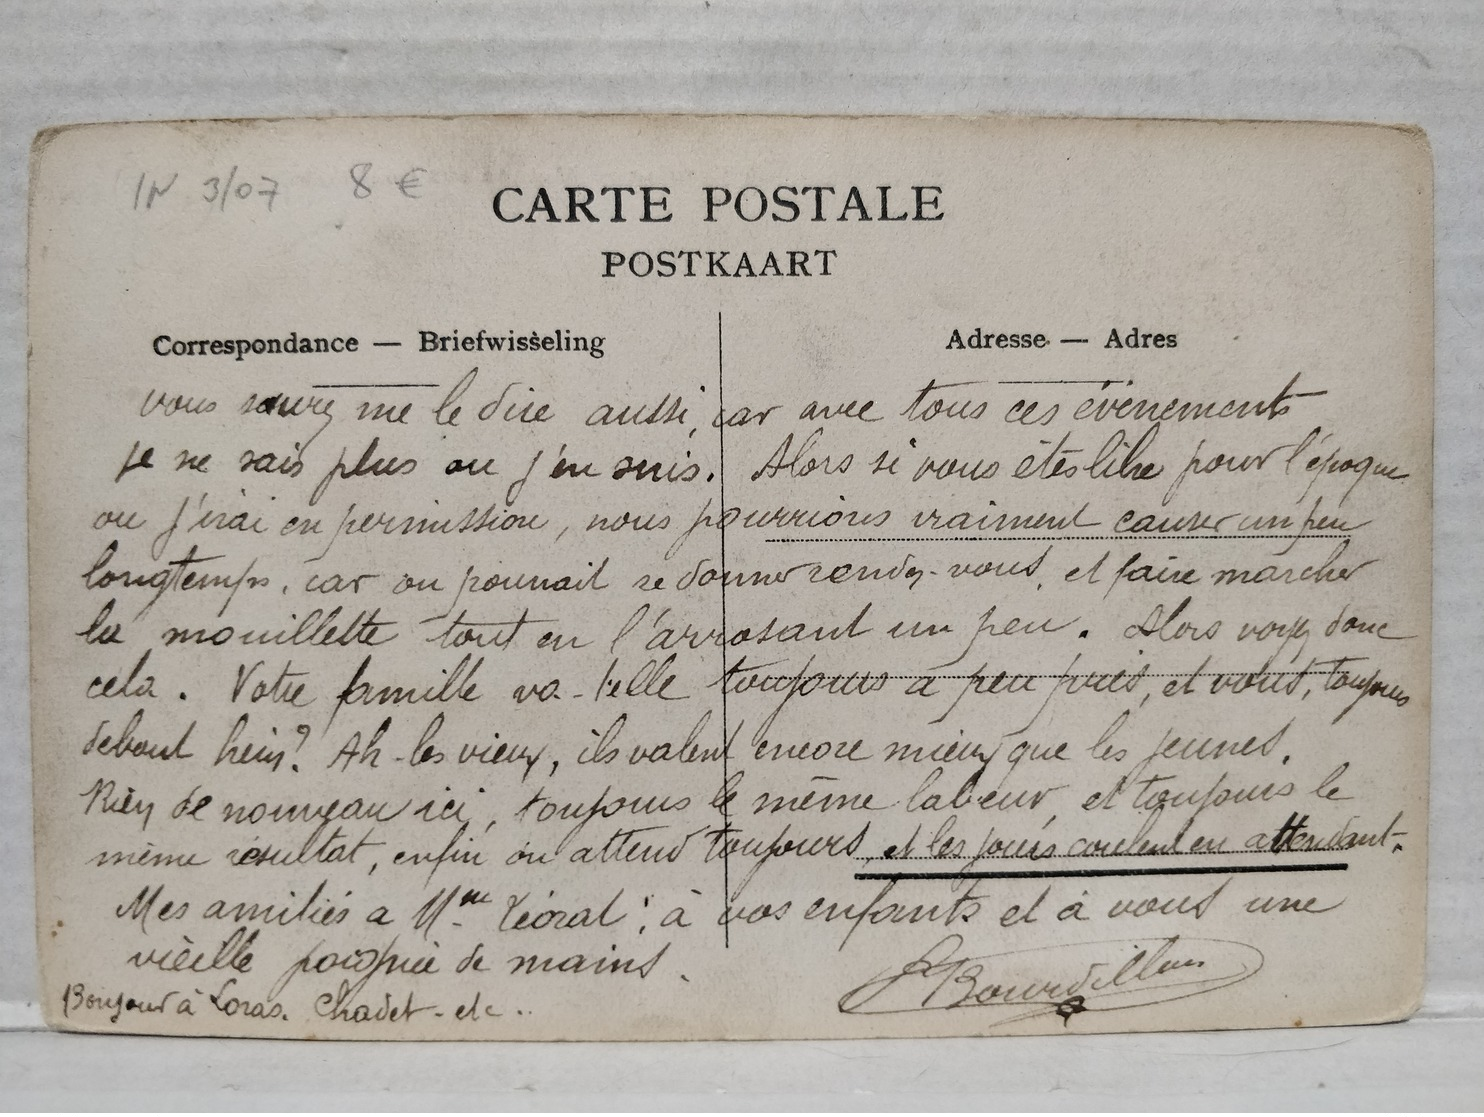 IN 3/07 8 €
CARTE POSTALE
POSTKAART
Correspondance — Briefwisseling
Adresse — Adres
vous saurez me le dire aussi, car avec tous ces évènements
je ne sais plus ou j'en suis. Alors si vous êtes libre pour l'époque
ou j'irai en permission, nous pourrions vraiment causer un peu
longtemps, car on pourrait se donner rendez-vous, et faire marcher
la mouillette tout en l'arrosant un peu. Alors voyez donc
cela. Votre famille va-t'elle toujours à peu près, et vous, toujours
debout hein? Ah les vieux, ils valent encore mieux que les jeunes.
Rien de nouveau ici, toujours le même labeur, et toujours le
même résultat, enfin on attend toujours, et les jours coulent en attendant.
Mes amitiés a Mme ; à vos enfants et à vous une
vieille poignée de mains.
Bourdillon
Bonjour à Loras. Chadet - etc..